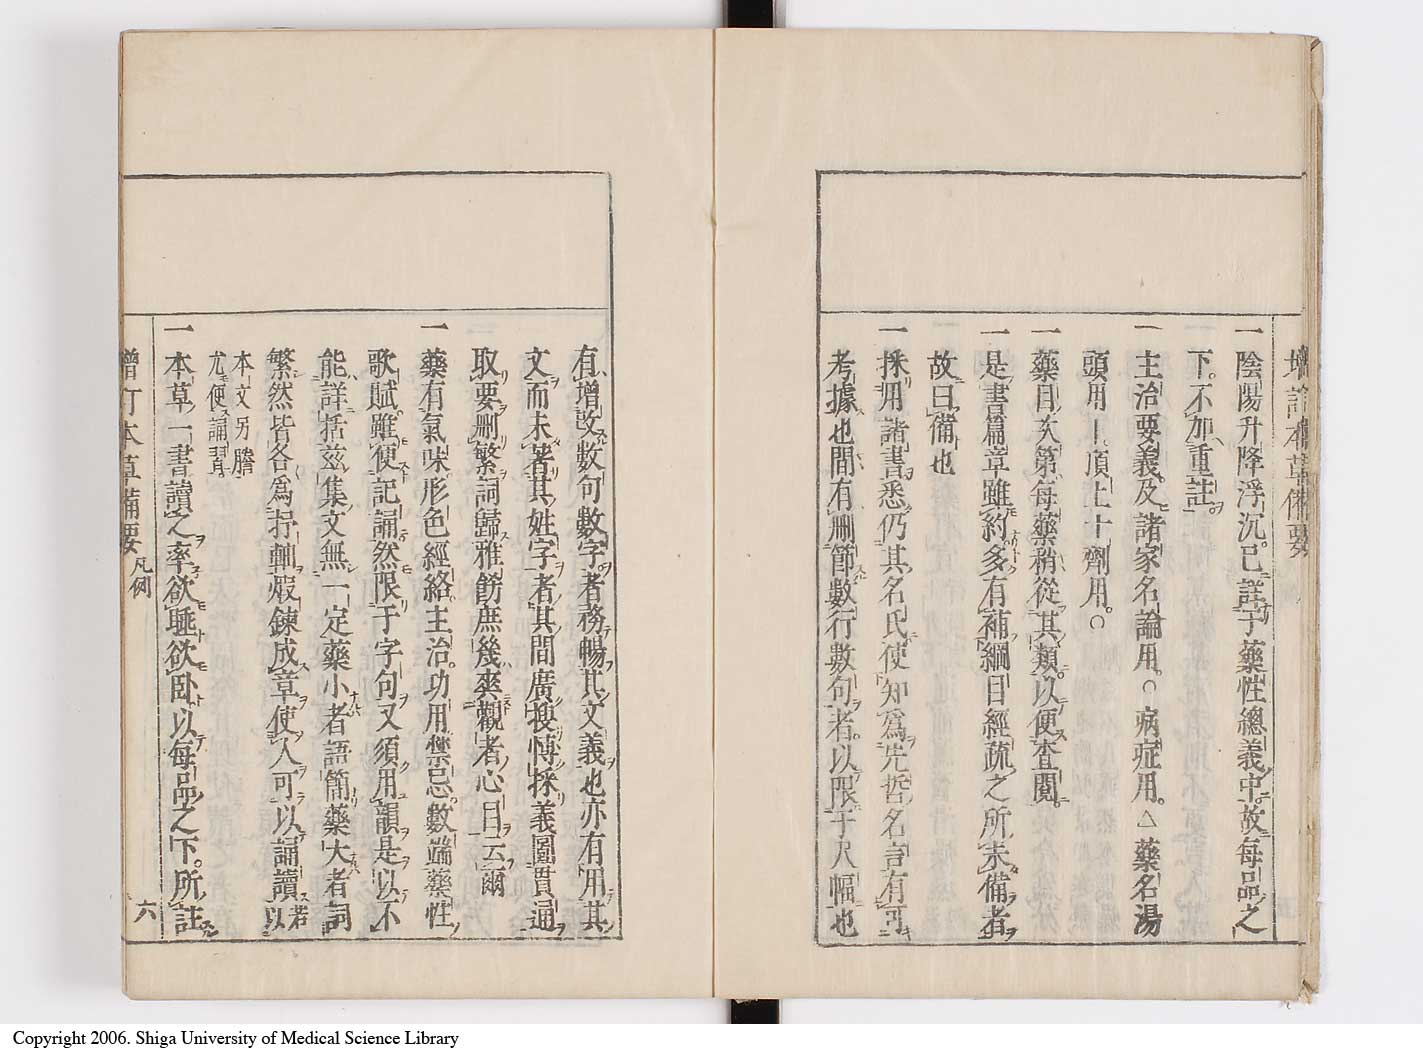 增訂本草備要
一陰陽升降浮沉已註于藥性總義中故每品之
下不加重註
一主治要義及諸家名論用。○病症用。△藥名湯
頭用丨頂上十劑用。○
一藥目次第每藥稍從其類以便査閱
一是書篇章雖約多有補綱目經疏之所未備者
故曰備也
一採用諸書悉仍其名氏使知爲先哲名言有可
考據也間有刪節數行數句者以限于尺幅也
有增改數句數字者務暢其文義也亦有用其
文而未著其姓字者其間廣搜博採義圖貫通
取要刪繁詞歸雅飭庶幾爽觀者心目云爾
一藥有氣味形色經絡主治功用禁忌數端藥性
歌賦雖便記誦然限于字句又須用韻是以不
能詳括玆集文無一定藥小者語簡藥大者詞
繁然皆各爲抒軸煅鍊成章使人可以誦讀若以
本文另謄
尤便誦習
一本草一書讀之率欲睡欲臥以每品之下所註
增訂本草備要 凡例 六
Copyright 2006. Shiga University of Medical Science Library